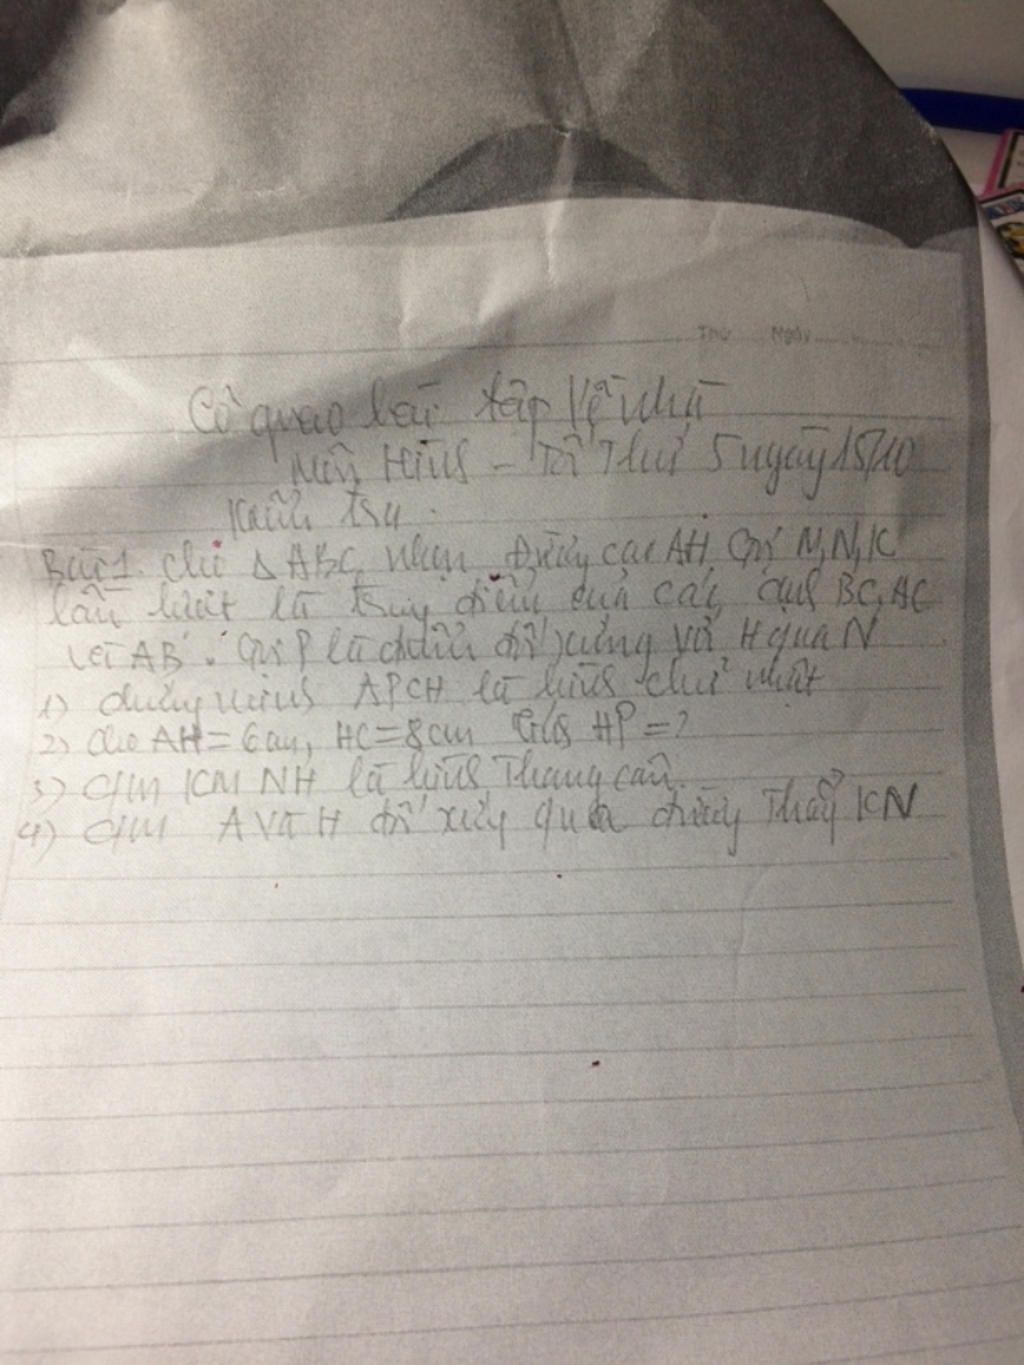 Thứ Ngày
Cô giao bài tập Về nhà
Môn Hình - Thứ 5 ngày 15/10
Kiểm tra.
Bài 1. Cho Δ ABC nhọn đường cao AH. Gọi M, N, K
lần lượt là trung điểm của các cạnh BC, AC
và AB. Gọi P là điểm đối xứng với H qua N
1) chứng minh APCH là hình chữ nhật
2) Cho AH = 6cm, HC = 8cm Tính HP = ?
3) C/M KMNH là hình Thang cân.
4) C/M A và H đối xứng qua đường Thẳng KN